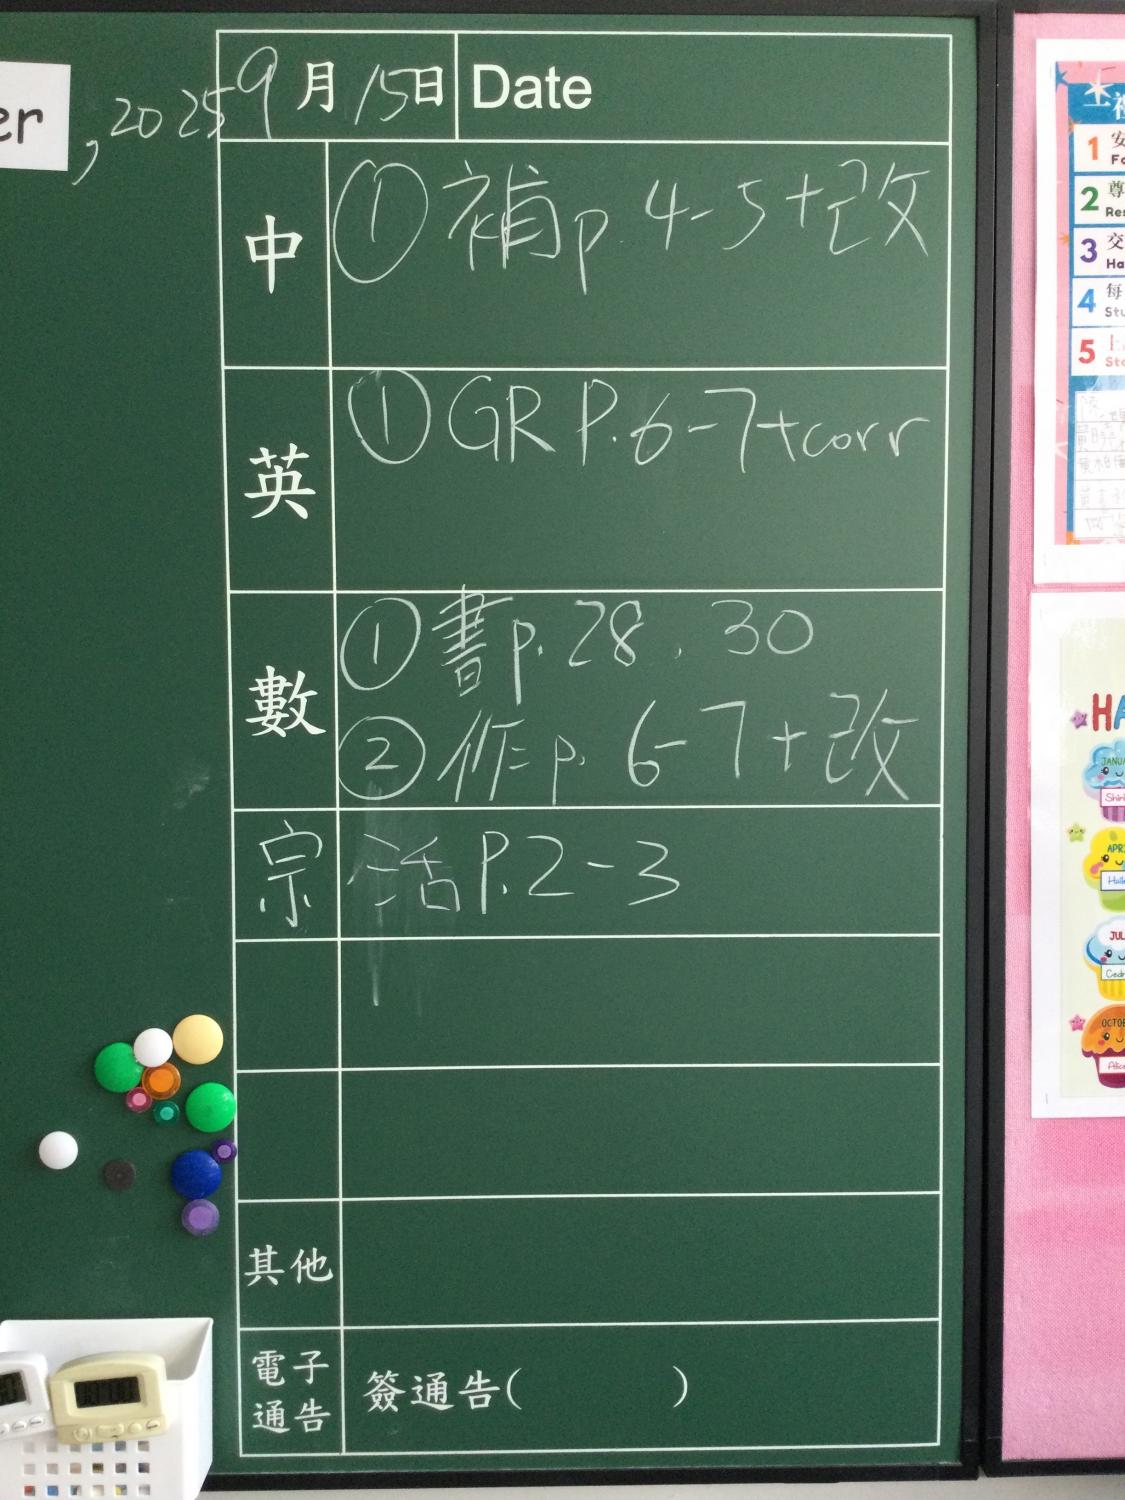 er
, 2025
9月15日 Date
中 ①補p.4-5+改
英 ①GR P.6-7+corr
數 ①書p.28、30
②作p.6-7+改
宗 活P.2-3
其他
電子通告 簽通告( )
1 安
Fo
2 尊
Res
3 交
Ha
4 每
Stu
5 上
Sta
HA
JANUA
Shirl
APRI
Haile
JUL
Cedr
OCTOB
Alice